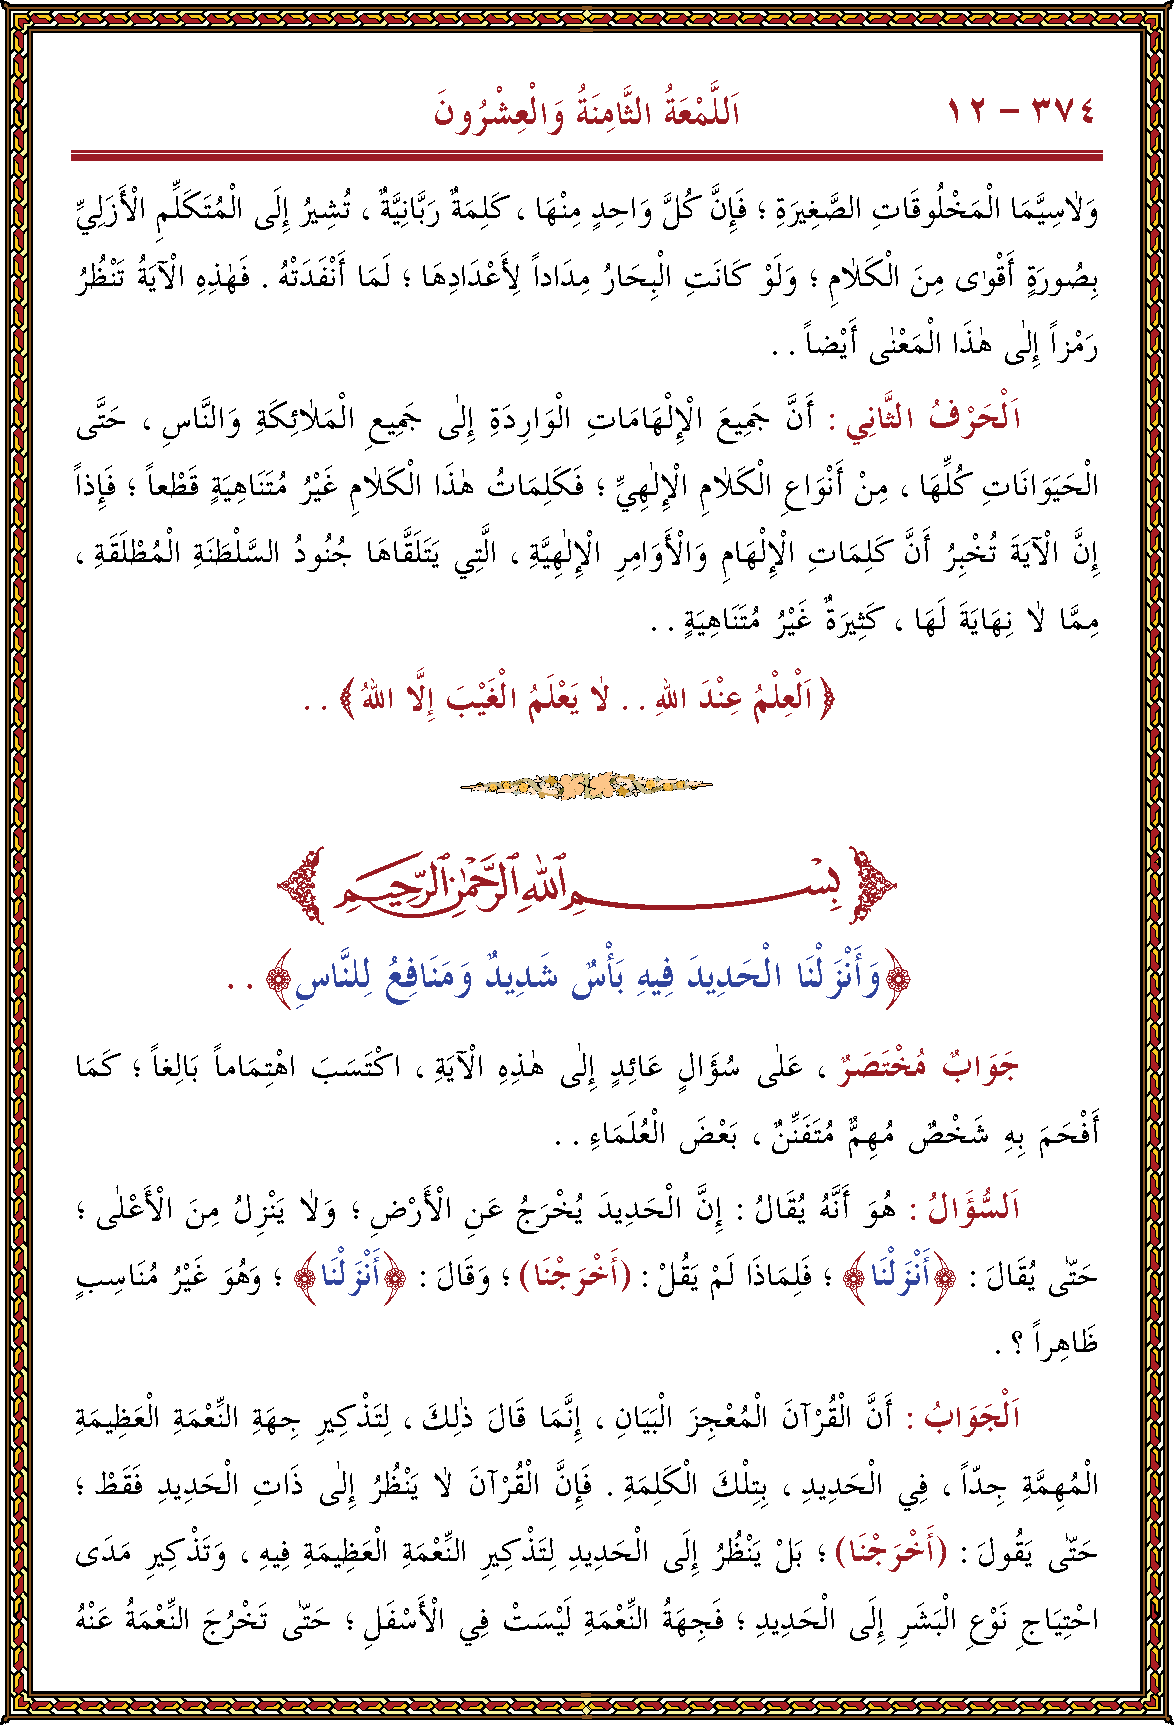 ٣٧٤ – ١٢
اَللَّمْعَةُ الثَّامِنَةُ وَالْعِشْرُونَ
وَلاٰسِيَّمَا الْمَخْلُوقَاتِ الصَّغِيرَةِ ؛ فَإِنَّ كُلَّ وَاحِدٍ مِنْهَا ، كَلِمَةٌ رَبَّانِيَّةٌ ، تُشِيرُ إِلَى الْمُتَكَلِّمِ الأَزَلِيِّ
بِصُورَةٍ أَقْوٰى مِنَ الْكَلاٰمِ ؛ وَلَوْ كَانَتِ الْبِحَارُ مِدَاداً لِأَعْدَادِهَا ؛ لَمَا أَنْفَدَتْهُ . فَهٰذِهِ الْآيَةُ تَنْظُرُ
رَمْزاً إِلٰى هٰذَا الْمَعْنٰى أَيْضاً . .
اَلْحَرْفُ الثَّانِي : أَنَّ جَمِيعَ الْإِلْهَامَاتِ الْوَارِدَةِ إِلٰى جَمِيعِ الْمَلاٰئِكَةِ وَالنَّاسِ ، حَتَّى
الْحَيَوَانَاتِ كُلِّهَا ، مِنْ أَنْوَاعِ الْكَلاٰمِ الْإِلٰهِيِّ ؛ فَكَلِمَاتُ هٰذَا الْكَلاٰمِ غَيْرُ مُتَنَاهِيَةٍ قَطْعاً ؛ فَإِذاً
إِنَّ الْآيَةَ تُخْبِرُ أَنَّ كَلِمَاتِ الْإِلْهَامِ وَالْأَوَامِرِ الْإِلٰهِيَّةِ ، الَّتِي يَتَلَقَّاهَا جُنُودُ السَّلْطَنَةِ الْمُطْلَقَةِ ،
مِمَّا لاٰ نِهَايَةَ لَهَا ، كَثِيرَةٌ غَيْرُ مُتَنَاهِيَةٍ . .
﴿ اَلْعِلْمُ عِنْدَ اللهِ . . لاٰ يَعْلَمُ الْغَيْبَ إِلَّا اللهُ ﴾ . .
بِسْمِ اللهِ الرَّحْمٰنِ الرَّحِيمِ
﴿وَأَنْزَلْنَا الْحَدِيدَ فِيهِ بَأْسٌ شَدِيدٌ وَمَنَافِعُ لِلنَّاسِ﴾ . .
جَوَابٌ مُخْتَصَرٌ ، عَلٰى سُؤَالٍ عَائِدٍ إِلٰى هٰذِهِ الْآيَةِ ، اكْتَسَبَ اهْتِمَاماً بَالِغاً ؛ كَمَا
أَفْحَمَ بِهِ شَخْصٌ مُهِمٌّ مُتَفَنِّنٌ ، بَعْضَ الْعُلَمَاءِ . .
اَلسُّؤَالُ : هُوَ أَنَّهُ يُقَالُ : إِنَّ الْحَدِيدَ يُخْرَجُ عَنِ الْأَرْضِ ؛ وَلاٰ يَنْزِلُ مِنَ الْأَعْلٰى ؛
حَتّٰى يُقَالَ : ﴿أَنْزَلْنَا﴾ ؛ فَلِمَاذَا لَمْ يَقُلْ : (أَخْرَجْنَا) ؛ وَقَالَ : ﴿أَنْزَلْنَا﴾ ؛ وَهُوَ غَيْرُ مُنَاسِبٍ
ظَاهِراً ؟ .
اَلْجَوَابُ : أَنَّ الْقُرْآنَ الْمُعْجِزَ الْبَيَانِ ، إِنَّمَا قَالَ ذٰلِكَ ، لِتَذْكِيرِ جِهَةِ النِّعْمَةِ الْعَظِيمَةِ
الْمُهِمَّةِ جِدّاً ، فِي الْحَدِيدِ ، بِتِلْكَ الْكَلِمَةِ . فَإِنَّ الْقُرْآنَ لاٰ يَنْظُرُ إِلٰى ذَاتِ الْحَدِيدِ فَقَطْ ؛
حَتّٰى يَقُولَ : (أَخْرَجْنَا) ؛ بَلْ يَنْظُرُ إِلَى الْحَدِيدِ لِتَذْكِيرِ النِّعْمَةِ الْعَظِيمَةِ فِيهِ ، وَتَذْكِيرِ مَدَى
احْتِيَاجِ نَوْعِ الْبَشَرِ إِلَى الْحَدِيدِ ؛ فَجِهَةُ النِّعْمَةِ لَيْسَتْ فِي الْأَسْفَلِ ؛ حَتّٰى تَخْرُجَ النِّعْمَةُ عَنْهُ